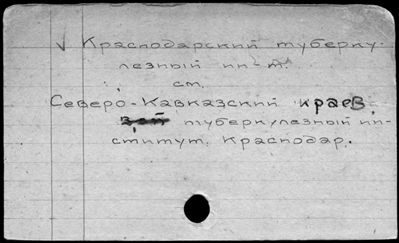 √ Краснодарский туберку-
лезный ин-т.
см.
Северо-Кавказский краев
туберкулезный ин-
ститут. Краснодар.